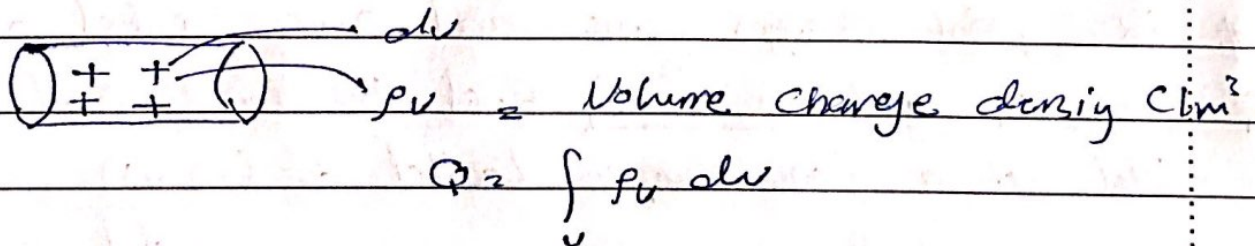 + + dv
+ + ρv = Volume charge density C/m³
Q = ∫ ρv dv
v